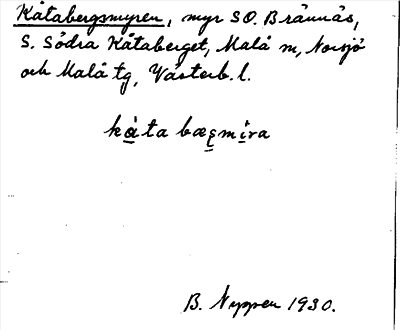 Kåtabergsmyren, myr SO. Brännås,
S. Södra Kåtaberget, Malå m, Norsjö
och Malå tg, Västerb. l.
kå̀ta bæʂmíra
B. Nyppen 1930.